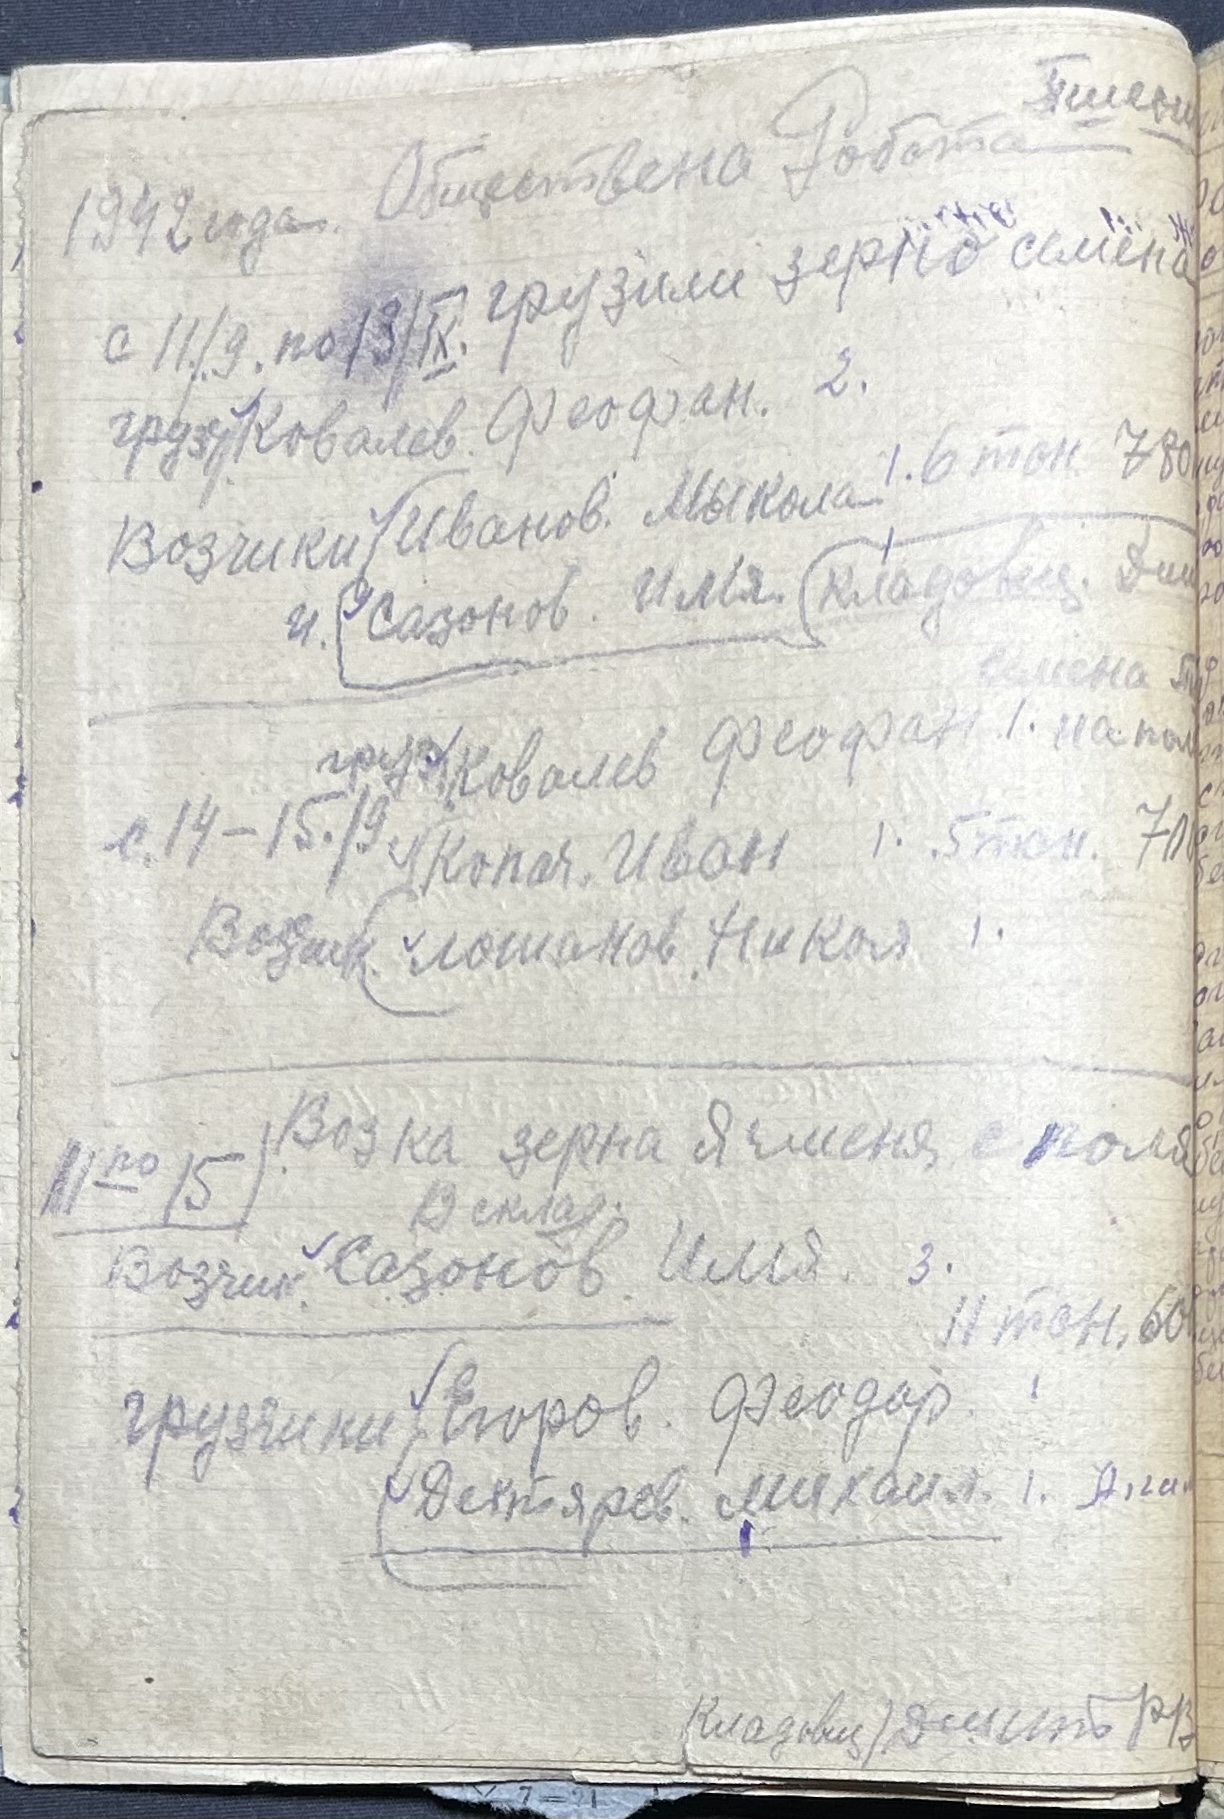 Обществена Робота
1942 года.
с 11/9. по 13/IX. грузили зерно семена
груз Ковалев Феофан. 2.
1. 6 тон 780
Возчики Иванов. Мыкола
и. Сазонов. Имя. Кладовщ.
семена
груз Ковалев Феофан 1. на пол
с. 14-15./9 Копач. Иван 1. 5 тон. 7
Возчик Лошанов. Никол 1.
Возка зерна Ячменя с поля
по 15
В склад.
Возчик. Сазонов Имя. 3.
11 тон. 60
грузчики Егоров. Феодор 1
Дектярев. Михаил. 1.
Кладовщ)
7-21